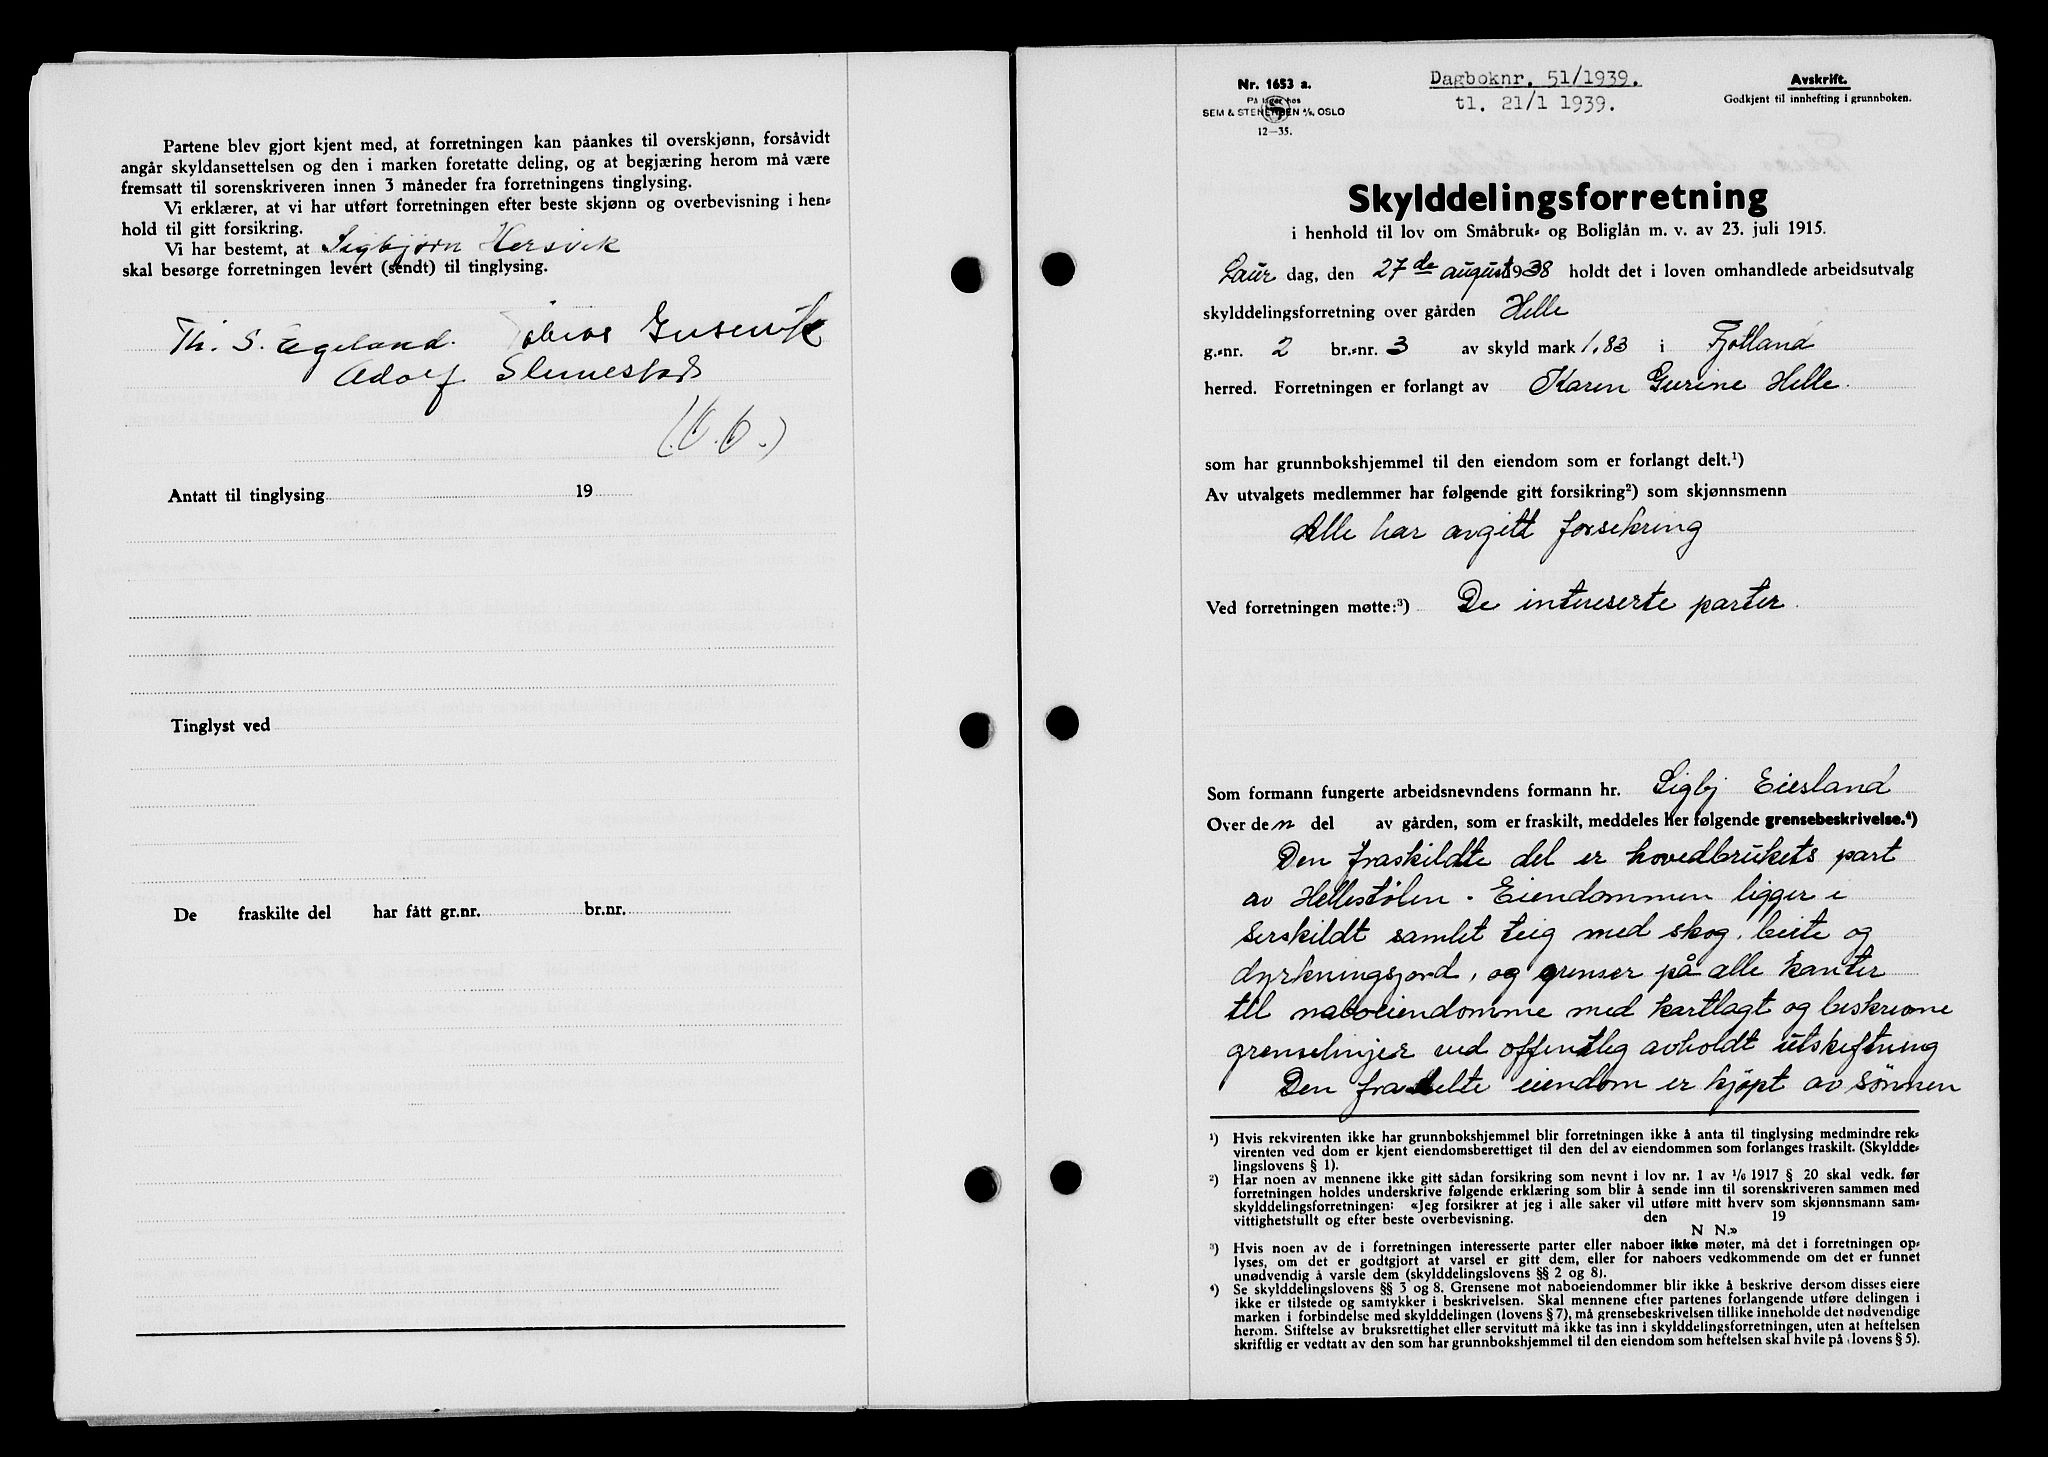 Partene blev gjort kjent med, at forretningen kan påankes til overskjønn, forsåvidt
angår skyldansettelsen og den i marken foretatte deling, og at begjæring herom må være
fremsatt til sorenskriveren innen 3 måneder fra forretningens tinglysing.
Vi erklærer, at vi har utført forretningen efter beste skjønn og overbevisning i hen=
hold til gitt forsikring.
Vi har bestemt, at Sigbjørn Hersvik
skal besørge forretningen levert (sendt) til tinglysing.
Th. S. Egeland. Tobias
Adolf
Antatt til tinglysing 19
Tinglyst ved
De fraskilte del har fått gr.nr. br.nr.
Nr. 1653 a.
På lager hos
SEM & STENERSEN A/S, OSLO
12—35.
Dagboknr. 51/1939.
tl. 21/1 1939.
Avskrift.
Godkjent til innhefting i grunnboken.
Skylddelingsforretning
i henhold til lov om Småbruk= og Boliglån m. v. av 23. juli 1915.
Laur dag, den 27de august 1938 holdt det i loven omhandlede arbeidsutvalg
skylddelingsforretning over gården Helle
g.=nr. 2 br.=nr. 3 av skyld mark 1,83 i Fjotland
herred. Forretningen er forlangt av Karen Gurine Helle.
som har grunnbokshjemmel til den eiendom som er forlangt delt.¹)
Av utvalgets medlemmer har følgende gitt forsikring²) som skjønnsmenn
Alle har avgitt forsikring
Ved forretningen møtte:³) De intreserte parter.
Som formann fungerte arbeidsnevndens formann hr. Sigbj Eiesland
Over den del av gården, som er fraskilt, meddeles her følgende grensebeskrivelse.⁴)
Den fraskildte del er hovedbrukets part
av Hellestølen. Eiendommen ligger i
serskildt samlet teig med skog, beite og
dyrkningsjord, og grenser på alle kanter
til naboeiendomme med kartlagt og beskrevne
grenselinjer ved offentlig avholdt utskiftning
Den fraskelte eiendom er kjøpt av sønnen
¹) Hvis rekvirenten ikke har grunnbokshjemmel blir forretningen ikke å anta til tinglysing medmindre rek=
virenten ved dom er kjent eiendomsberettiget til den del av eiendommen som forlanges fraskilt. (Skyldde=
lingslovens § 1).
²) Har noen av mennene ikke gitt sådan forsikring som nevnt i lov nr. 1 av 1/6 1917 § 20 skal vedk. før
forretningen holdes underskrive følgende erklæring som blir å sende inn til sorenskriveren sammen med
skylddelingsforretningen: «Jeg forsikrer at jeg i alle saker vil utføre mitt hverv som skjønnsmann sam=
vittighetsfullt og efter beste overbevisning. den 19
N N.»
³) Hvis noen av de i forretningen interesserte parter eller naboer ikke møter, må det i forretningen op=
lyses, om det er godtgjort at varsel er gitt dem, eller for naboers vedkommende om det er funnet
unødvendig å varsle dem (skylddelingslovens §§ 2 og 8).
⁴) Se skylddelingslovens §§ 3 og 8. Grensene mot naboeiendommer blir ikke å beskrive dersom disses eiere
ikke er tilstede og samtykker i beskrivelsen. Skal mennene efter partenes forlangende utføre delingen i
marken i forbindelse med skylddelingen (lovens § 7), må grensebeskrivelsen tillike inneholde det nødvendige
herom. Stiftelse av bruksrettighet eller servitutt må ikke tas inn i skylddelingsforretningen, uten at heftelsen
skriftlig er vedtatt av den som har grunnbokshjemmel til den eiendom som heftelsen skal hvile på (lovens § 5).